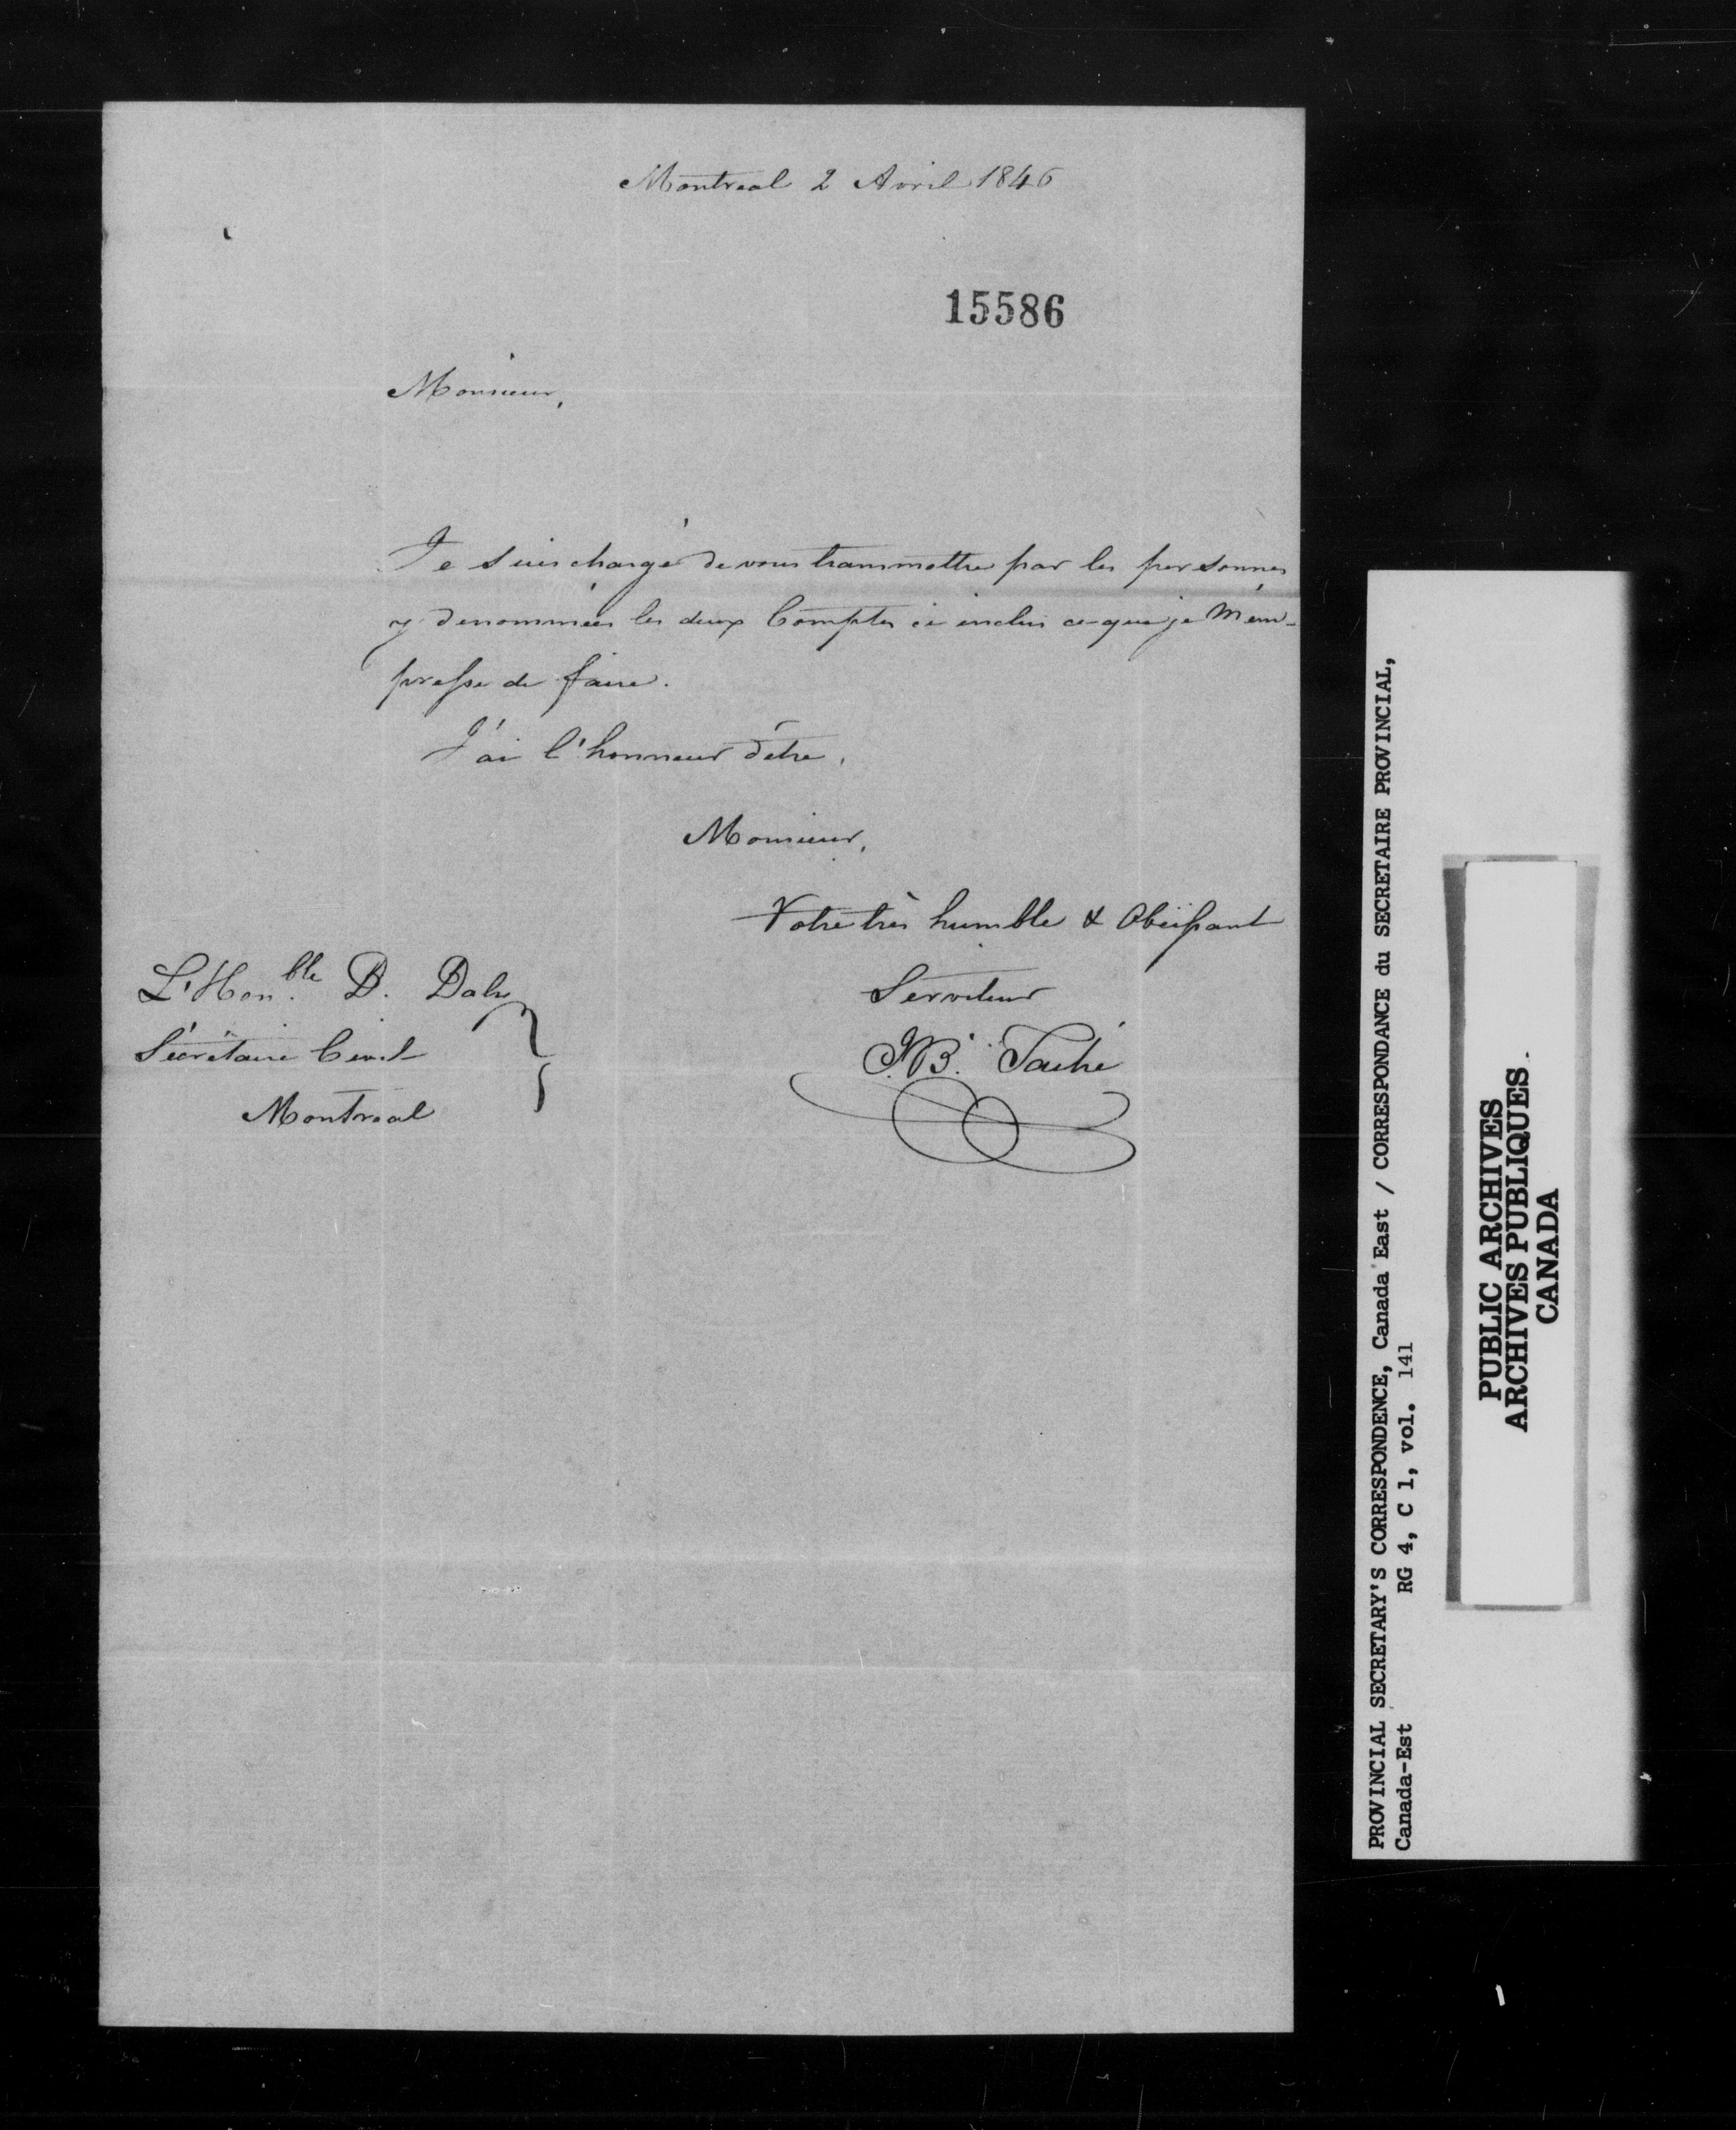 Montreal 2 Avril 1846
15586
Monsieur,
Je suis chargé de vous transmettre par les personnes
y dénommées les deux Comptes ci inclus ce que je m'em-
presse de faire.
J'ai l'honneur d'être,
Monsieur,
Votre très humble & Obéissant
Serviteur
J.B. Taché
L'Hon.ble D. Daly
Sécrétaire Civil
Montreal
PROVINCIAL SECRETARY'S CORRESPONDENCE, Canada East / CORRESPONDANCE du SECRETAIRE PROVINCIAL,
Canada-Est RG 4, C 1, vol. 141
PUBLIC ARCHIVES
ARCHIVES PUBLIQUES
CANADA